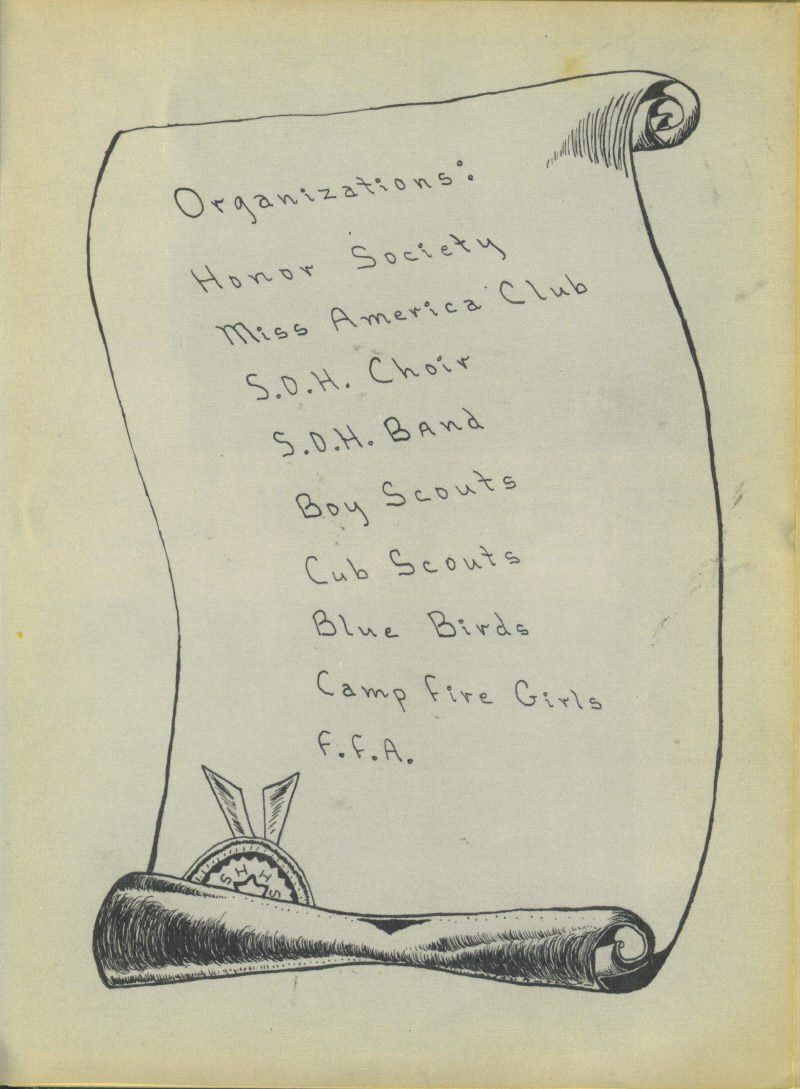 Organizations:
Honor Society
Miss America Club
S.O.H. Choir
S.O.H. BAnd
Boy Scouts
Cub Scouts
Blue Birds
Camp Fire Girls
F.F.A.
SHHS